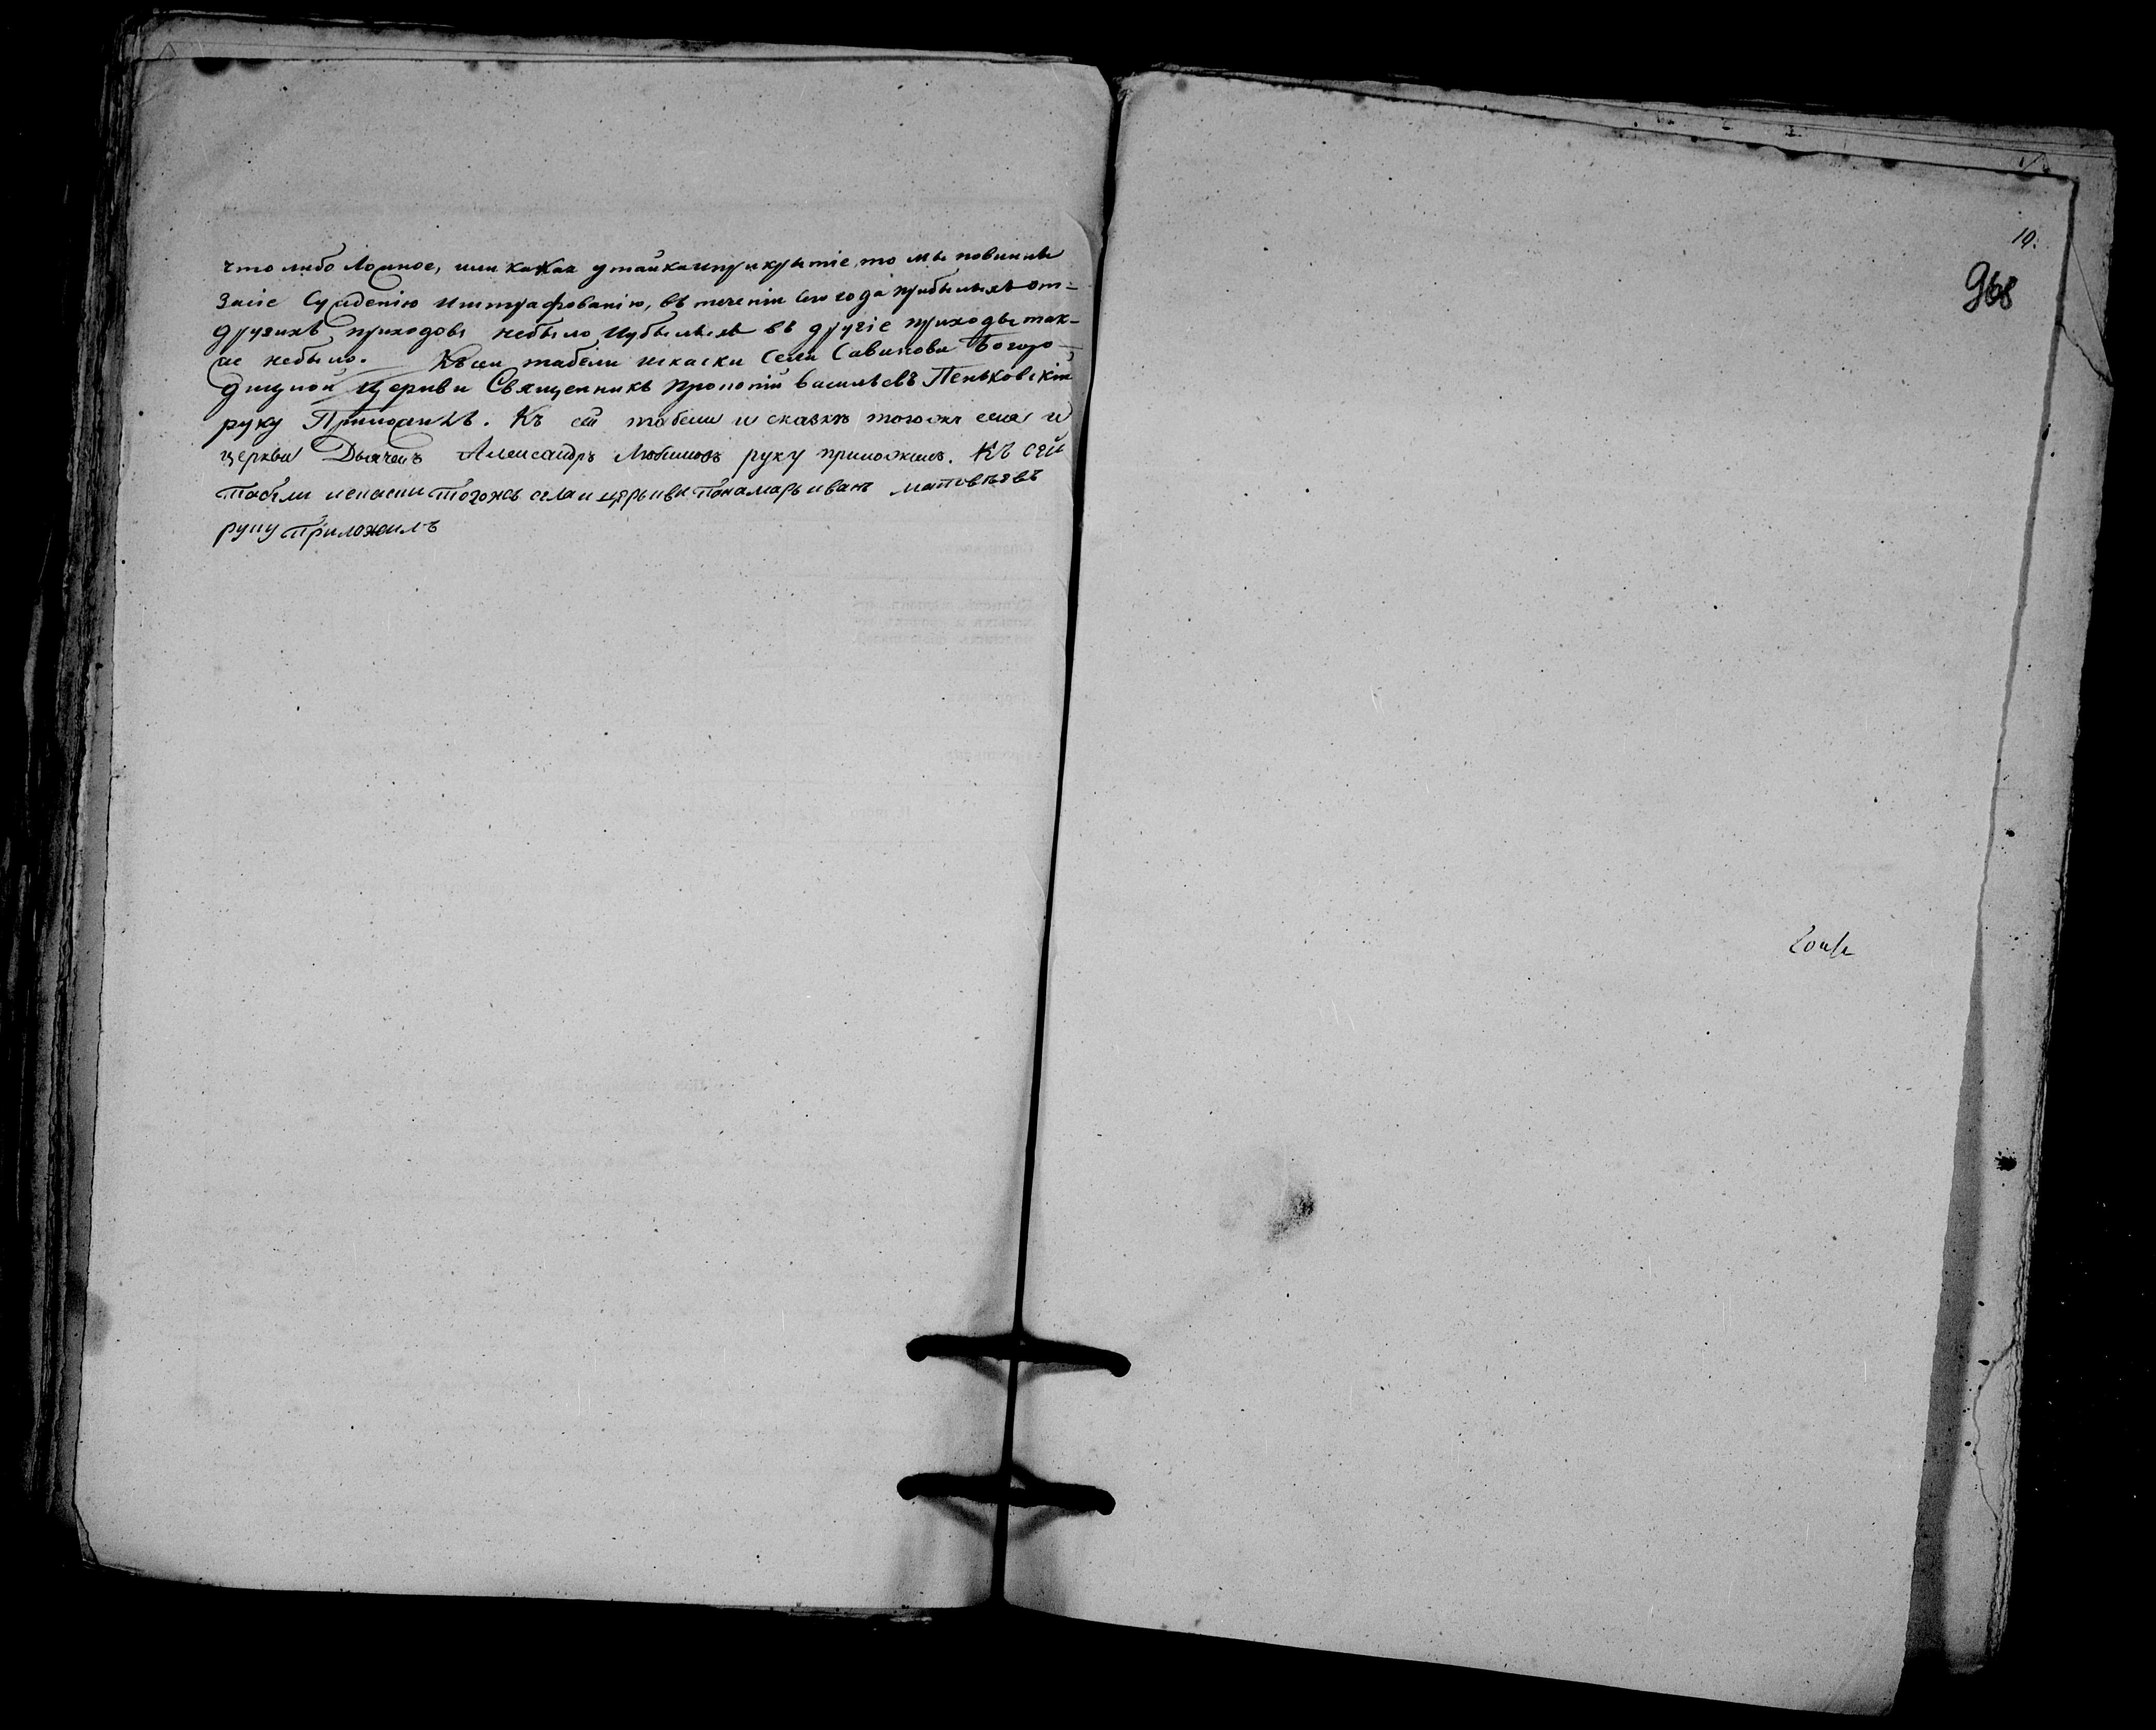 что либо ложное, или какая утайка и прикрытіе, то мы повинны
за сіе сужденію и штрафованію, въ теченіи сего года прибылыхъ от=
другихъ приходовъ небыло и убылыхъ въ другіе приходы так=
же небыло. Къ сеи табели и скаски села Савинова Богоро=
дицкой Церкви Священникъ Прокопій Васильевъ Пеньковскій
руку Приложилъ. Къ сей табели и сказкѣ тогожъ села и
церкви Дьячекъ Александръ Любимовъ руку приложилъ. Къ сей
табѣли искаски тогожъ села и цѣркви понамарь иванъ матвѣевъ
руку приложилъ
19.
968